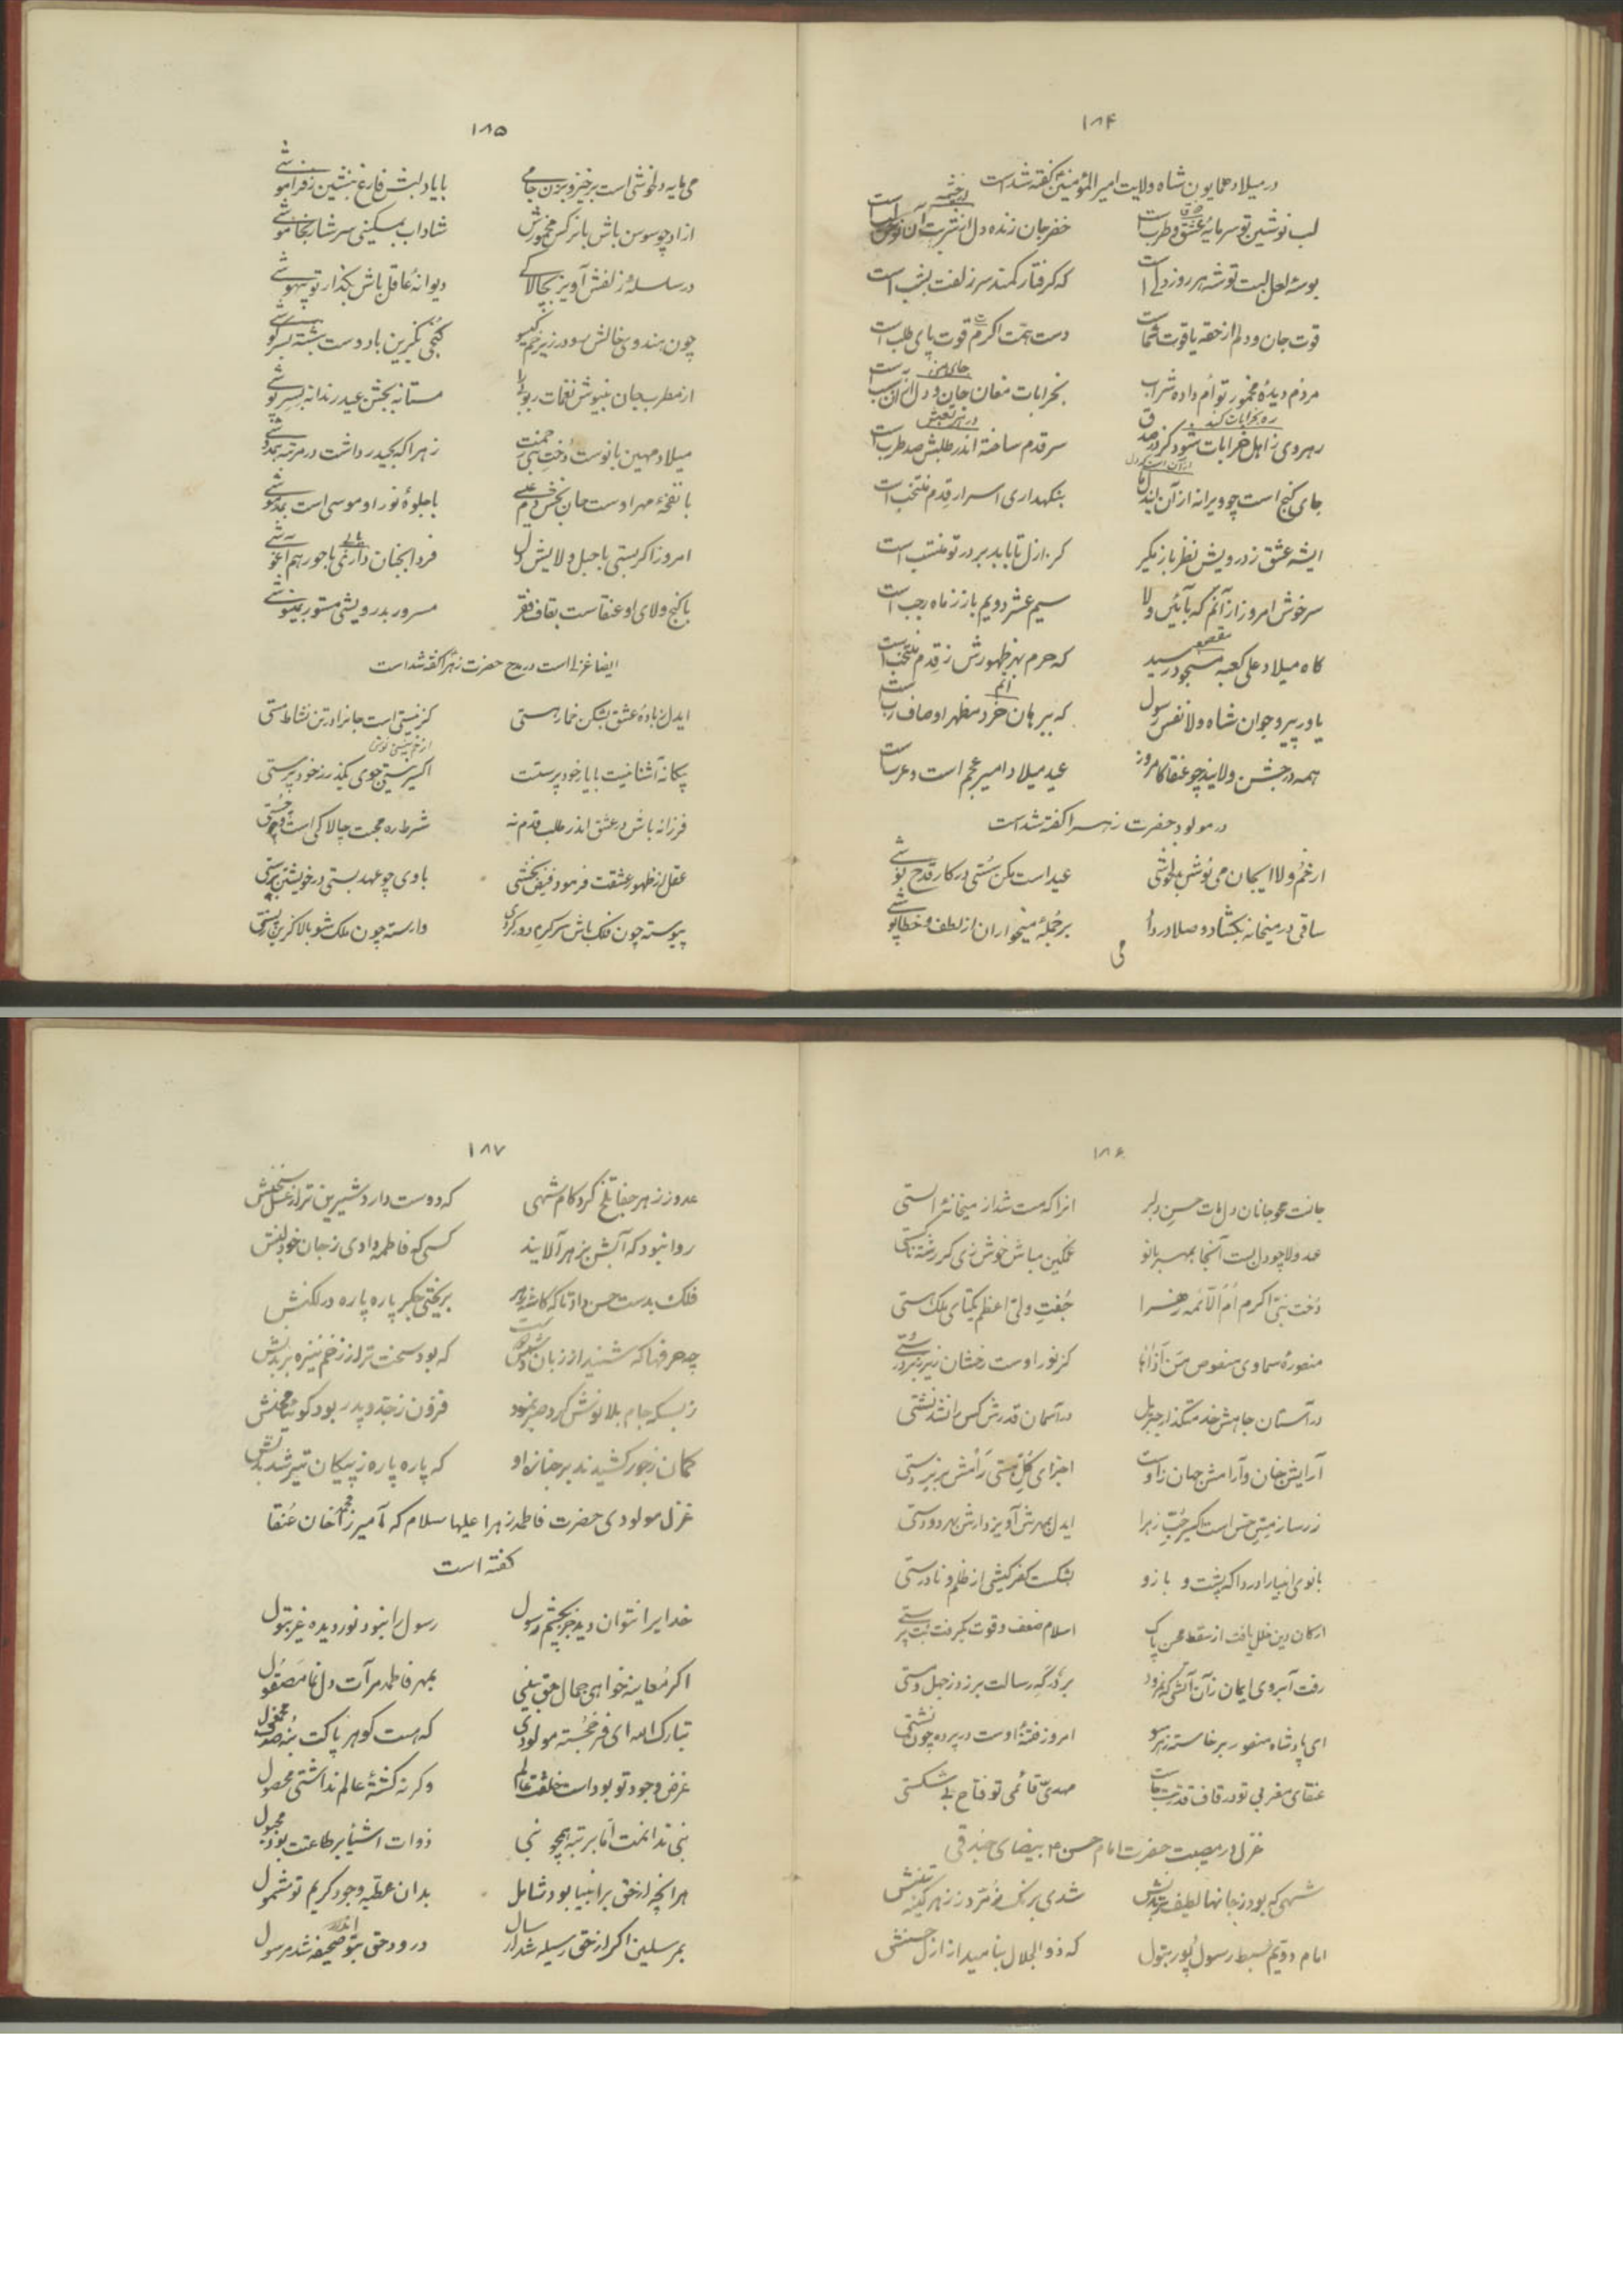 ۱۸۴
در میلاد همایون شاه ولایت امیرالمؤمنین گفته شد است
لب نوشین تو سرمایهٔ عشق و طربست خضر جان زنده دل از شربت آن است
بوسهٔ لعل لبت توشه هر روز دل است که گرفتار کمند سر زلفت بشب است
قوت جان و دلم از حقه یاقوت شماست دست همت اکرم قوت پای طلب است
مردم دیدهٔ مخمور توام داده شراب بخرابات مغان جان و دل
رهروی ز اهل خرابات شود گر سر قدم ساخته اندر طلبش صد طرب است
جای گنج است چو ویرانه از آن بنگهداری اسرار قدم منتخب است
ایشه عشق ز درویش نظر باز مگیر کز ازل تا بابد بر در تو منتسب است
سرخوش امروز از آنم که بآئین ولا سیم عشر دویم باز ز ماه رجب است
گاه میلاد علی کعبه مسجود رسید که حرم بهر ظهورش ز قدم منتخب است
یاور پیر و جوان شاه ولا نفس رسول که ببرهان خرد مظهر اوصاف رب است
همه در جشن ولایند چو عنقا کامروز عید میلاد امیر عجم است و عربست
در مولود حضرت زهرا گفته شد است
از خم ولا ایجان می نوش بدلخوشی عید است مکن سستی در کار قدح نوشی
ساقی در میخانه بگشاد و صلا در داد بر جملهٔ میخواران از لطف و خطاپوشی
می
۱۸۵
می مایه دلخوشی است برخیز و بزن جامی با یاد لبش فارغ بنشین ز فراموشی
ازاد چو سوسن باش با نرگس مخمورش شاداب بمسکینی سرشار بخاموشی
در سلسلهٔ زلفش آویز بچالاکی دیوانهٔ عاقل باش بگذار تو بیهوشی
چون هندوی خالش سو در زیر خم گیسو کنجی بگزین با دوست بنشسته بسرگوشی
از مطرب جان بنیوش نغمات مستانه بجشن عید رندانه
میلاد مهین بانوست دخت نبی رحمت زهرا که بحیدر داشت در مرتبه همدوشی
با نفخهٔ مهر اوست جان بخش دم عیسی با جلوهٔ نور او موسی است بمدهوشی
امروز اگر بستی با حبل ولایش دل فردا بجنان داری جای با حور هم آغوشی
با گنج ولای او عنقاست بقاف فقر مسرور بدرویشی مستور
ایضا غزلی است در مدح حضرت زهرا گفته شد است
ایدل ز بادهٔ عشق بشکن خمار هستی کز نیستی است جانرا در تن نشاط مستی
بیگانه آشنا نیست با یار خود پرستت اکسیر نیستی جوی بگذر ز خود پرستی
فرزانه باش در عشق اندر طلب قدم نه شرط ره محبت چالاکی است و چستی
عقل از ظهور عشقت فرمود فیض بخشی با وی چو عهد بستی در خویشتن پرستی
پیوسته چون فلک باش سرگرم دور گردی وارسته چون ملک شو بالا گزین ز پستی
۱۸۶
جانت محو جانان دل مات حسن دلبر انرا که مست شد از میخانهٔ الستی
عهد ولا چو دل بست آنجا بمهر بانو غمگین مباش خوش زی گر رشته ناگسستی
دخت نبی اکرم ام الائمه زهرا جفت ولی اعظم یکتای ملک هستی
منصورهٔ سماوی منصوص من آذاها کز نور اوست رخشان زیر و زبر
در آستان جاهش خدمتگذار جبریل در آسمان قدرش کس را نشد نشستی
آرایش جنان و آرامش جهان زاوست اجزای کل هستی رامش بزیردستی
زر ساز مس جس است اکسیر حب زهرا ایدل بمهرش آویز دارش بهر دو دستی
بانوی انبیا را دردا که پشت و بازو بشکست کفر کیشی از ظلم و نادرستی
ارکان دین خلل یافت از سقط محسن پاک اسلام ضعف و قوت بگرفت بت پرستی
رفت آبروی ایمان زان آتشی که نمرود بر درگه رسالت برزد ز جهل و مستی
ای پادشاه منصور برخاسته ز هر سو امروز فتنهٔ اوست در پرده چون نشستی
عنقای مغربی تو در قاف قدرت مهدی قائمی تو فتاح بی شکستی
غزل در مصیبت حضرت امام حسن ع بیضای جندقی
شهی که بود ز جانها لطیف تر بدنش شدی برنگ زمرد ز زهر کینه تنش
امام دویم سبط رسول پور بتول که ذوالجلال بنامید از ازل حسنش
۱۸۷
عدو ز زهر جفا تلخ کرد کام شهی که دوست دارد شیرین تر از عسل سخنش
روا نبود که آبش بزهر آلایند کسی که فاطمه دادی ز جان خود لبنش
فلک بدست حسن داد تا که کاسه زهر بریختی جگر پاره پاره در لگنش
چه حرفها که شنید از زبان دشمن که بود سخت تر از زخم نیزه بر بدنش
ز بسکه جام بلا نوش کرد و صبر نمود فزون ز جد و پدر بود گوئیا محنش
کمان ز جور کشیدند بر جنازه او که پاره پاره ز پیکان تیر شد بدنش
غزل مولودی حضرت فاطمه زهرا علیها سلام که آمیرزا محمد خان عنقا
گفته است
خدایرا نتوان دید جز بچشم رسول رسول را نبود نور دیده غیر بتول
اگر معاینه خواهی جمال حق بینی بمهر فاطمه مرآت دل نما مصقول
تبارک الله ای فر خجسته مولودی که هست گوهر پاکت
غرض وجود تو بود است خلقت عالم وگرنه کشتهٔ عالم نداشتی محصول
نبی نه اذنت اما برتبه همچو نبی ذوات اشیا بر طاعتت بود مجبول
هر انچه از حق بر انبیا بود شامل بدان عطیه وجود کریم تو مشمول
بمرسلین اگر از حق رسیله شد ارسال درود حق بتو اندر صحیفه شد مرسول